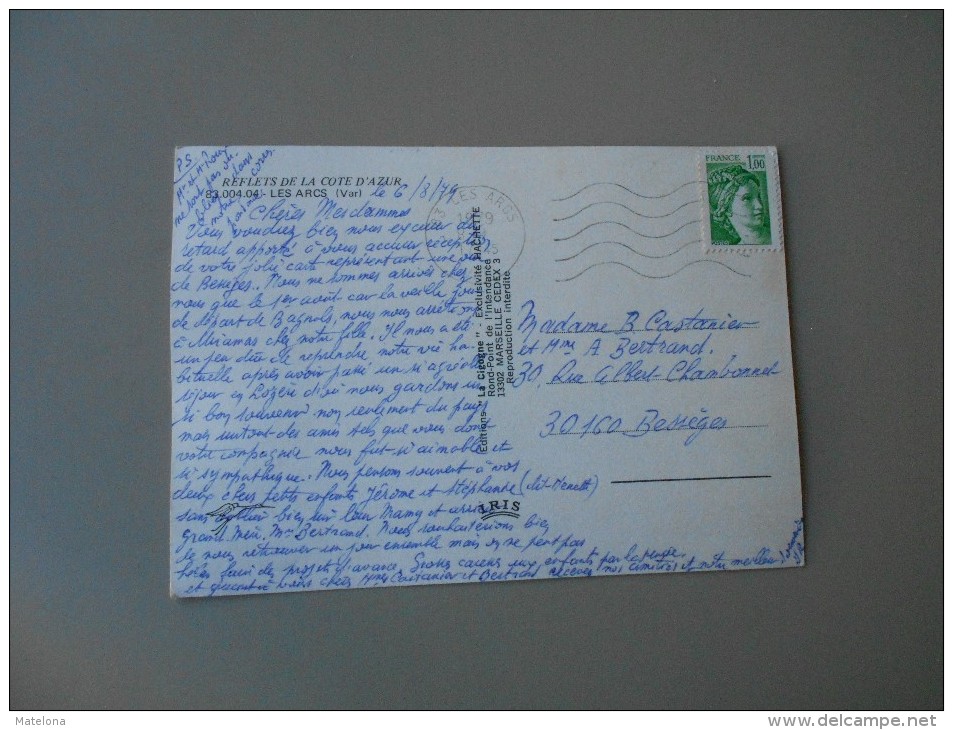 P.S.
Mr et
ne sont pas ou-
bliés dans
notre
REFLETS DE LA COTE D'AZUR
83.004.04 - LES ARCS (Var) le 6/8/79
Chères Mesdammes
Vous voudrez bien nous excuser du
retard apporté à vous accuser réception
de votre jolie carte représentant une vue
de Bessèges. Nous ne sommes arrivés chez
nous que le 1er août car la veille jour
de départ de Bagnols, nous nous
à Miramas chez notre fille. Il nous a été
un peu dur de reprendre notre vie ha-
bituelle après avoir passé un si agréable
séjour en Lozère d'où nous gardons un
si bon souvenir non seulement du pays
mais surtout des amis tels que vous dont
votre compagnie nous fut si aimable et
si sympathique. Nous pensons souvent à vos
deux chers petits enfants Jérôme et Stéphanie
sans bien sûr leur Mamy et arrière
grand Mère, Mme Bertrand. Nous souhaiterions bien
de nous retrouver un jour ensemble mais on ne peut pas
hélas faire de projets d'avance. Grosses caresses aux enfants par la pensée
et quant à vous chères Mmes Castanier et Bertrand recevez nos amitiés et notre meilleur
83 LES ARCS
FRANCE 1,00
Editions "La Cigogne". Exclusivité HACHETTE
Rond-Point de l'Intendance
13302 MARSEILLE CEDEX 3
Reproduction interdite.
IRIS
Madame B. Castanier
et Mme A Bertrand.
30, Rue Albert Chambonnet
30160 Bessèges
Matelona
http://www.delcampe.net